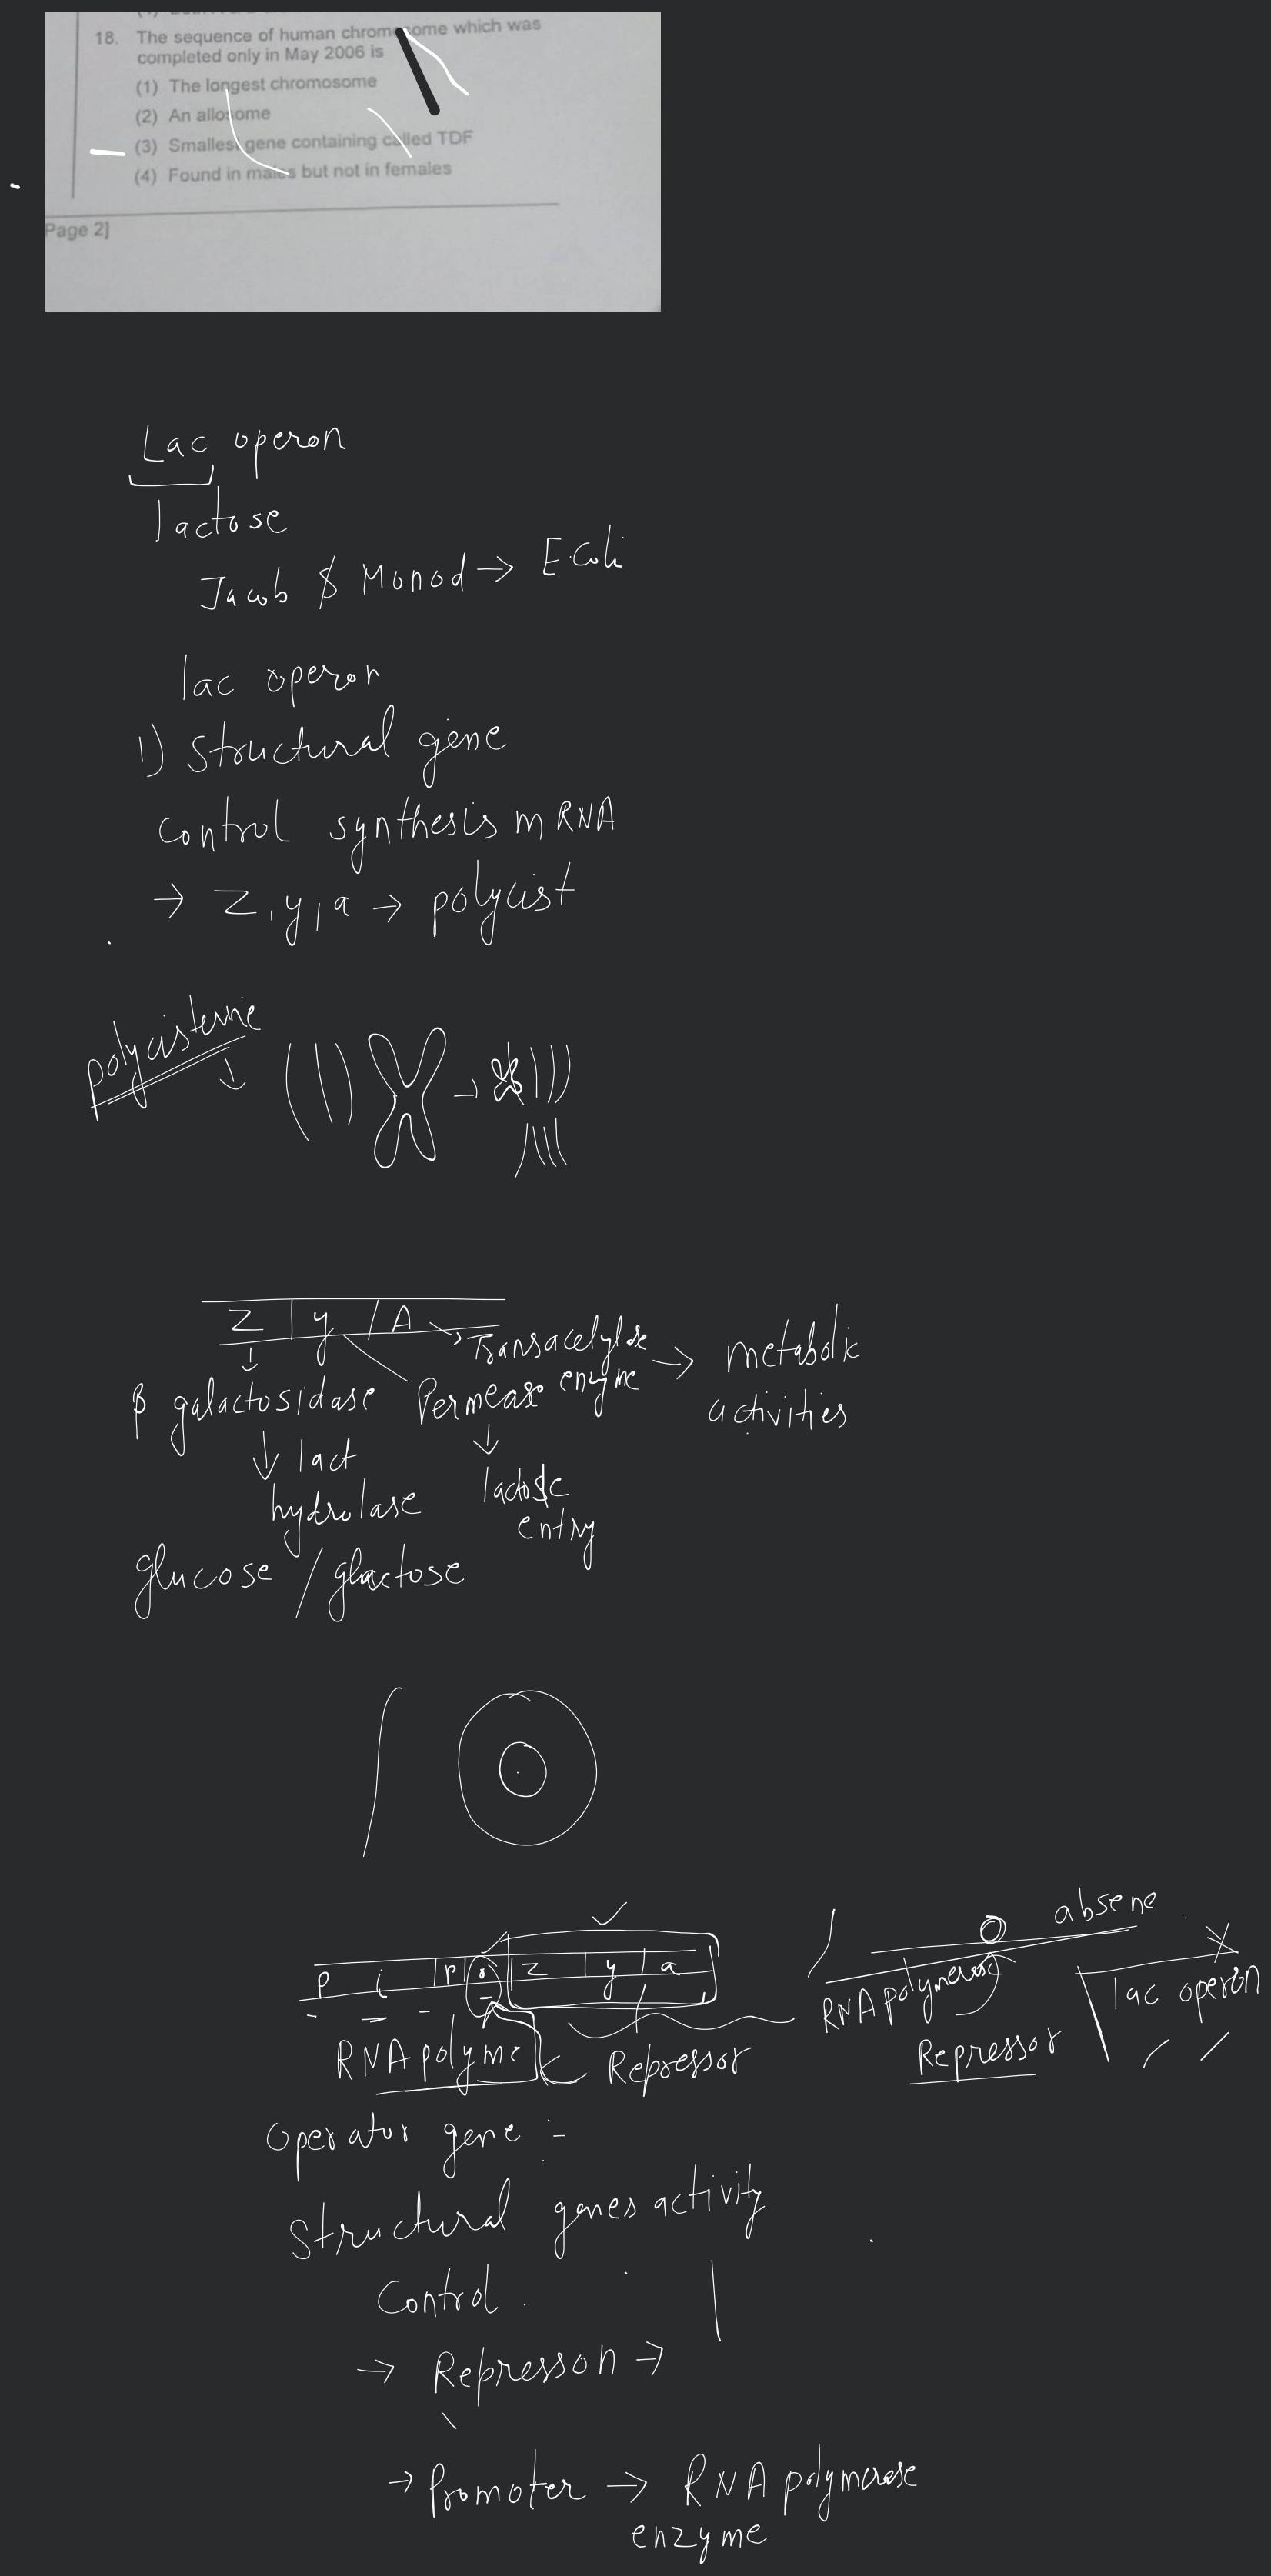 18. The sequence of human chromosome which was
completed only in May 2006 is
(1) The longest chromosome
(2) An allosome
(3) Smallest gene containing called TDF
(4) Found in males but not in females
Page 2]
Lac operon
lactose
Jacob & Monod → E.Coli
lac operon
1) Structural gene
control synthesis mRNA
→ z, y, a → polycist
→
z y A
β galactosidase Permease Transacetylase enzyme → metabolic activities
↓ lact
hydrolase
lactose
entry
glucose / glactose
absene
P i P o z y a
RNA polyme Repressor
RNA polymerase
Repressor
lac operon
Operator gene :-
Structural genes activity
Control.
→ Represson →
→ Promoter → RNA polymerase
enzyme